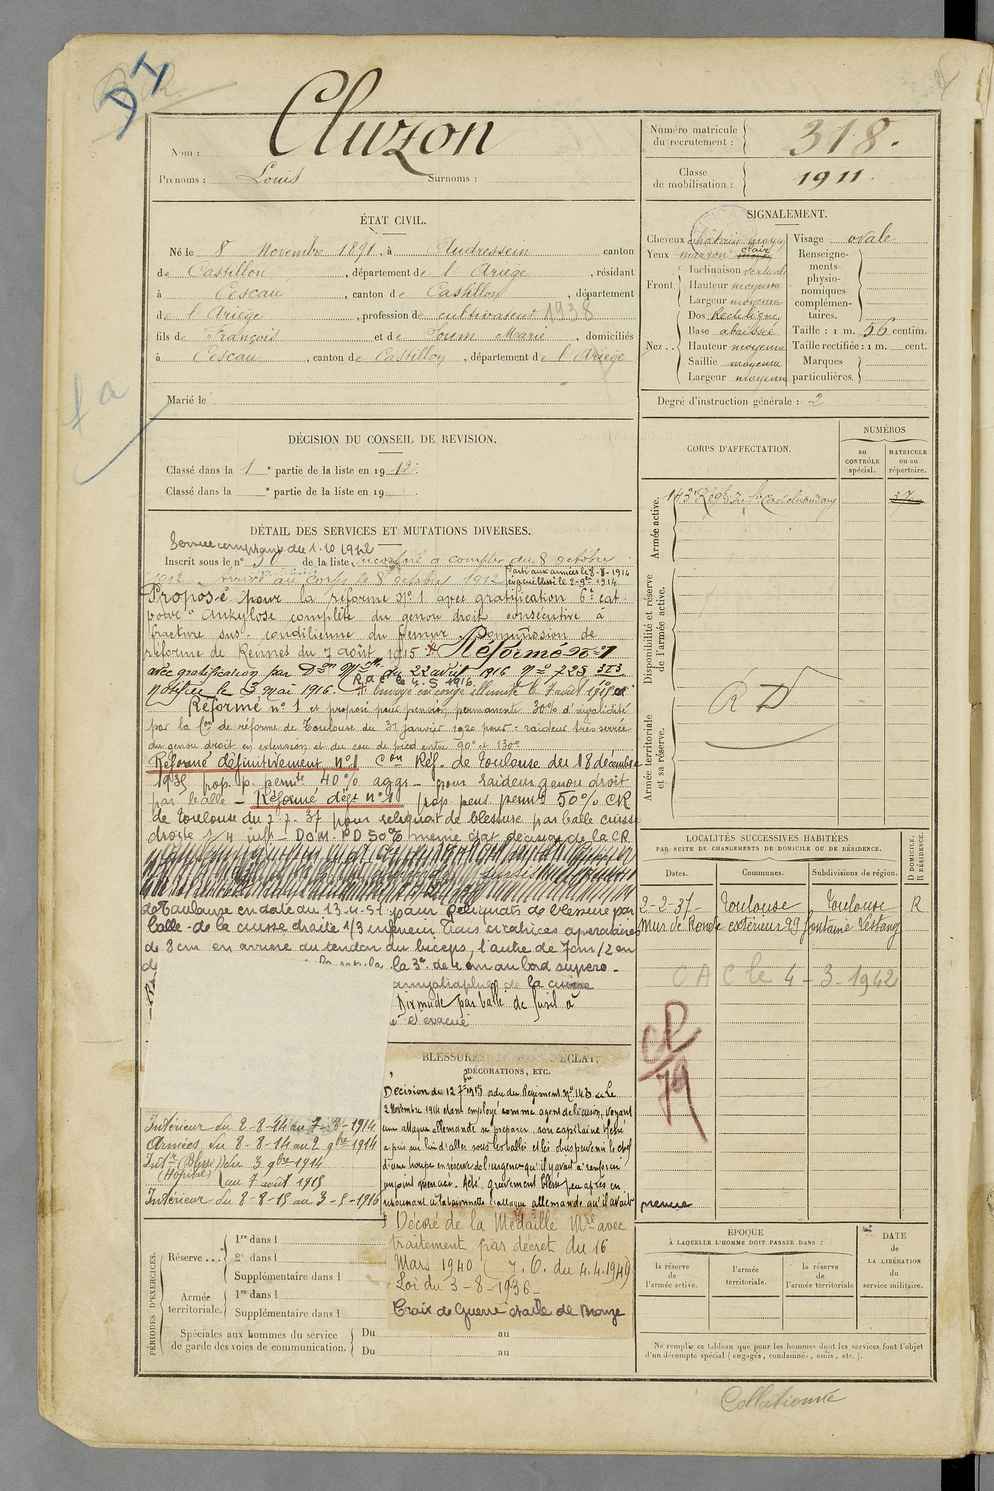 DI
Nom : Cluzon
Prénoms : Louis Surnoms :
Numéro matricule du recrutement : 318.
Classe de mobilisation : 1911.
ÉTAT CIVIL.
Né le 8 Novembre 1891, à Audressein canton
de Castillon, département de l'Ariège, résidant
à Cescau, canton de Castillon, département
de l'Ariège, profession de cultivateur 1938
fils de François et de Soum Marie, domiciliés
à Cescau, canton de Castillon, département de l'Ariège
Marié le
SIGNALEMENT.
Cheveux châtain moyen
Yeux marron clair
Front Inclinaison verticale
Hauteur moyenne
Largeur moyenne
Nez Dos Rectiligne
Base abaissée
Hauteur moyenne
Saillie moyenne
Largeur moyenne
Visage ovale
Renseignements physionomiques complémentaires.
Taille : 1 m. 56 centim.
Taille rectifiée : 1 m. cent.
Marques particulières.
Degré d'instruction générale : 2
DÉCISION DU CONSEIL DE REVISION.
Classé dans la 1e partie de la liste en 1912.
Classé dans la e partie de la liste en 19
CORPS D'AFFECTATION.
NUMÉROS
au CONTRÔLE spécial.
MATRICULE ou au répertoire.
Armée active.
143e Régt d'Inf. Castelnaudary
Disponibilité et réserve de l'armée active.
Armée territoriale et sa réserve.
R D
DÉTAIL DES SERVICES ET MUTATIONS DIVERSES.
Service comptant du 1.10 1912
Inscrit sous le n° 50 de la liste, incorporé à compter du 8 octobre
1912. Arrivé au corps le 8 octobre 1912. Parti aux armées le 8-8-1914
blessé le 2-9bre 1914
Proposé pour la réforme N° 1 avec gratification 6e cat.
pour "ankylose complète du genou droit consécutive à
fracture sus-condilienne du femur. Commission de
réforme de Rennes du 7 août 1915. Réformé n° 1
avec gratification par Don Mlle du 22 avril 1916 N° 725
notifiée le 3 mai 1916. envoyé en congé illimité le 7 août 1915
Réformé n° 1 et proposé pour pension permanente 30% d'invalidité
par la Con de réforme de Toulouse du 31 janvier 1920 pour: raideur très serrée
du genou droit en extension et du cou de pied entre 90° et 130°
Réformé définitivement n° 1 Con Réf. de Toulouse du 18 décembre
1935 prop. p. permte 40% aggr - pour raideur genou droit
par balle - Réformé déft n° 1 prop. pens. permte 50% CR
de Toulouse du 7. 7. 37 pour reliquat de blessure par balle cuisse
droite 1/4 inf. - DOM. PD 50% même état décision de la CR
de Toulouse en date du 13.4.51 pour Reliquats de blessure par
balle - de la cuisse droite 1/3 inférieur trois cicatrices opératoires
de 8 cm en arrière du tendon du biceps, l'autre de 7cm/2 en
la 3e de 4 cm au bord supero-
amyotrophie de la cuisse
Dixmude par balle de fusil à
évacué
LOCALITÉS SUCCESSIVES HABITÉES
PAR SUITE DE CHANGEMENTS DE DOMICILE OU DE RÉSIDENCE.
Dates. Communes. Subdivisions de région.
D DOMICILE. R RÉSIDENCE.
2-2-37- Toulouse Toulouse R
Mur de Ronde extérieur 29 fontaine Lestang
O A C le 4-3-1942
CP/79
BLESSURES D'ÉCLAT,
DÉCORATIONS, ETC.
Décision du 12 7bre 1915 ordre du Régiment N° 143 Le
2 Novembre 1914 étant employé comme agent de liaison, voyant
une attaque allemande se préparer, son capitaine
a pris sur lui d'aller sous les balles et les obus prévenir le chef
d'une troupe en réserve de l'urgence qu'il y avait à renforcer
un point menacé. A été grièvement blessé peu après en
repoussant à la baïonnette l'attaque allemande qu'il avait
prévue
Décoré de la Médaille Mre avec
traitement par décret du 16
Mars 1940 (J. O. du 4.4.1940)
Loi du 3-8-1936-
Croix de Guerre étoile de Bronze
Intérieur du 2-8-14 au 7-8-1914
Armées du 8-8-14 au 2 9bre 1914
Intr (Blessé) du 3 9bre 1914
(Hôpital) au 7 août 1915
Intérieur du 8-8-15 au 3-5-1916
PÉRIODES D'EXERCICES.
Réserve... 1re dans l
2e dans l
Supplémentaire dans l
Armée territoriale. 1re dans l
Supplémentaire dans l
Spéciales aux hommes du service de garde des voies de communication.
Du au
Du au
ÉPOQUE
À LAQUELLE L'HOMME DOIT PASSER DANS :
la réserve de l'armée active.
l'armée territoriale.
la réserve de l'armée territoriale
DATE de LA LIBÉRATION du service militaire.
Ne remplir ce tableau que pour les hommes dont les services font l'objet
d'un décompte spécial (engagés, condamnés, omis, etc.).
Collationné